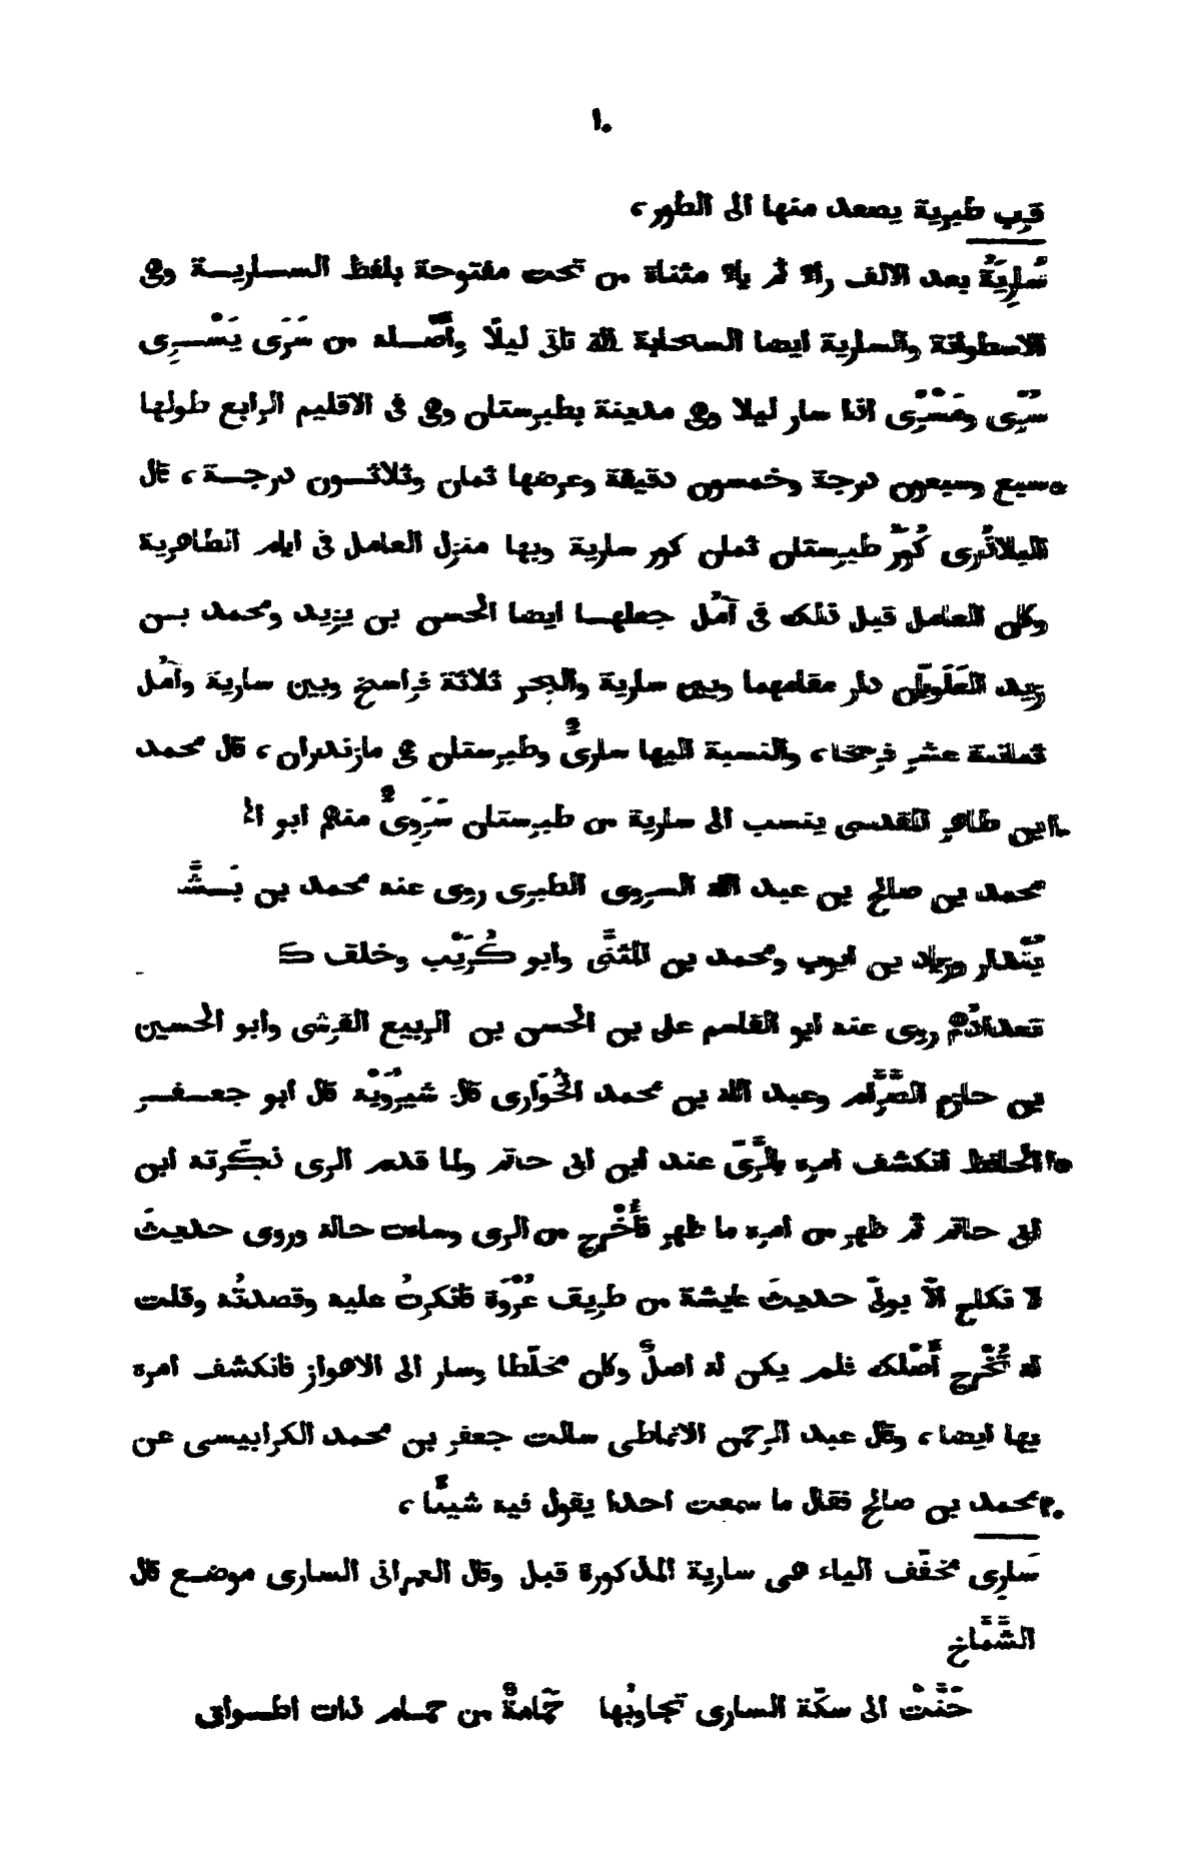 ١٠
قرب طبرية يصعد منها الى الطور،
سَارِيَةُ بعد الالف راء ثم ياء مثناة من تحت مفتوحة بلفظ الســاريــة وهى
الاسطوانة والسارية ايضا السحابة الله تاتى ليلًا وأَصْــله من سَرَى يَسْــرِى
سُرًى ومَسْرًى اذا سار ليلا وهى مدينة بطبرستان وهى فى الاقليم الرابع طولها
٥سبع وسبعون درجة وخمسون دقيقة وعرضها ثمان وثلاثــون درجــة، قال
البلاذُرى كُوَرُ طبرستان ثمان كور سارية وبها منزل العامل فى ايام الطاهرية
وكان العامل قبل ذلك فى آمُل جعلهــا ايضا الحسن بن يزيد ومحمد بــن
زيد العَلَويّان دار مقامهما وبين سارية والبحر ثلاثة فراسخ وبين سارية وآمُل
ثمانية عشر فرسخا، والنسبة اليها سارىٌّ وطبرستان هى مازندران، قال محمد
١٠ابن طاهر المقدسى ينسب الى سارية من طبرستان سَرَوِىٌّ منهم ابو الح
محمد بن صالح بن عبد الله السروى الطبرى روى عنه محمد بن بَــشَّـ
بُنْدار وزياد بن ايوب ومحمد بن المثنَّى وابو كُرَيْب وخلف كـ
تعدادُهم روى عنه ابو القاسم على بن الحسن بن الربيع القرشى وابو الحسين
بن حازم الصَّرَّام وعبد الله بن محمد الخُوَارى قال شيرُوَيْه قال ابو جعــفــر
١٥الحافظ انكشف امره بالرَّىّ عند ابن ابى حاتم ولما قدم الرى ذكّرته ابن
ابى حاتم ثم ظهر من امره ما ظهر فأُخْرج من الرى وساءت حاله وروى حديثَ
لا نكاح الّا بولىّ حديثَ عايشة من طريق عُرْوَة فانكرتُ عليه وقصدتُه وقلت
له تُخْرج أَصْلك فلم يكن له اصلٌ وكان مخلّطا وسار الى الاهواز فانكشف امره
بها ايضا، وقال عبد الرحمن الانماطى سالت جعفر بن محمد الكرابيسى عن
٢٠محمد بن صالح فقال ما سمعت احدا يقول فيه شيئًا،
سَارِى مخفّف الياء هى سارية المذكورة قبل وقال العمرانى السارى موضــع قال
الشَّمَّاخ
حَنَّتْ الى سكّة السارى تجاوبُها حَمَامةٌ من حمــام ذات اطــواق